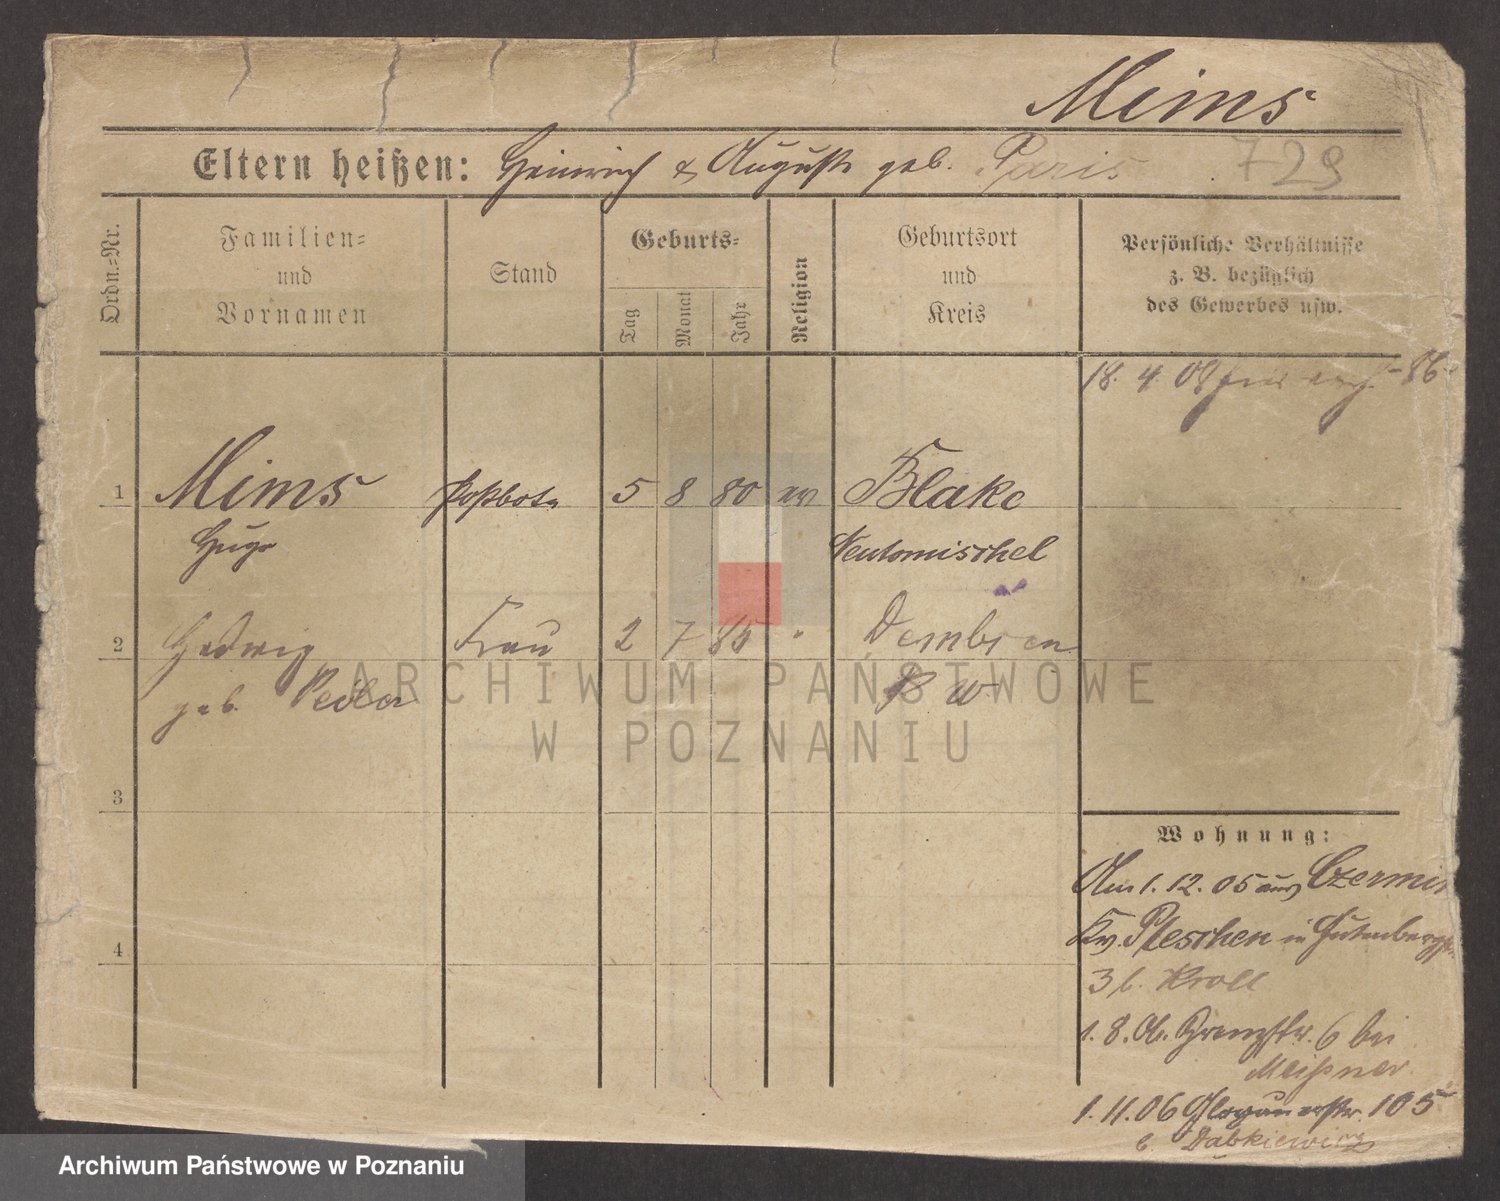 Mims
Eltern heißen: Heinrich & Auguste geb. Paris 729
Ordn.=Nr.
Familien=
und
Vornamen
Stand
Geburts=
Tag
Monat
Jahr
Religion
Geburtsort
und
Kreis
Persönliche Verhältnisse
z. B. bezüglich
des Gewerbes usw.
18. 4. 08 86
1 Mims Postbote 5 8 80 ev Blake
Hugo Neutomischel
2 Hedwig Frau 2 7 85 " Dembsen
geb. P W
3
4
Wohnung:
Am 1. 12. 05 aus Czermin
Kr. Pleschen in Gutenbergstr.
3 b. Kroll
1. 8. 06. Prenzstr. 6 bei
Meißner
1. 11. 06 Glogauerstr. 105
b. Dąbkiewicz
ARCHIWUM PAŃSTWOWE
W POZNANIU
Archiwum Państwowe w Poznaniu